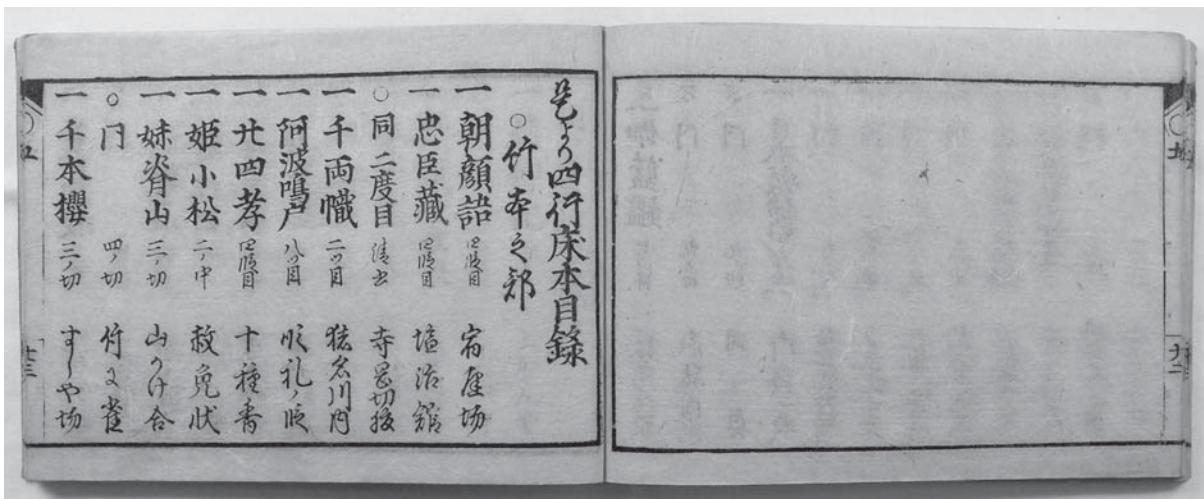 是より四行床本目錄
○竹本之部
一 朝顔話 四段目 宿屋場
一 忠臣藏 四段目 塩冶舘
○ 同 二度目 清書 寺岡切腹
一 千両幟 二ツ目 猪名川内
一 阿波鳴戸 八ツ目 順礼ノ段
一 廿四孝 四段目 十種香
一 姫小松 二ノ中 赦免状
一 妹脊山 三ノ切 山のかけ合
○ 同 四ノ切 竹に雀
一 千本櫻 三ノ切 すしや場
廿三
廿二